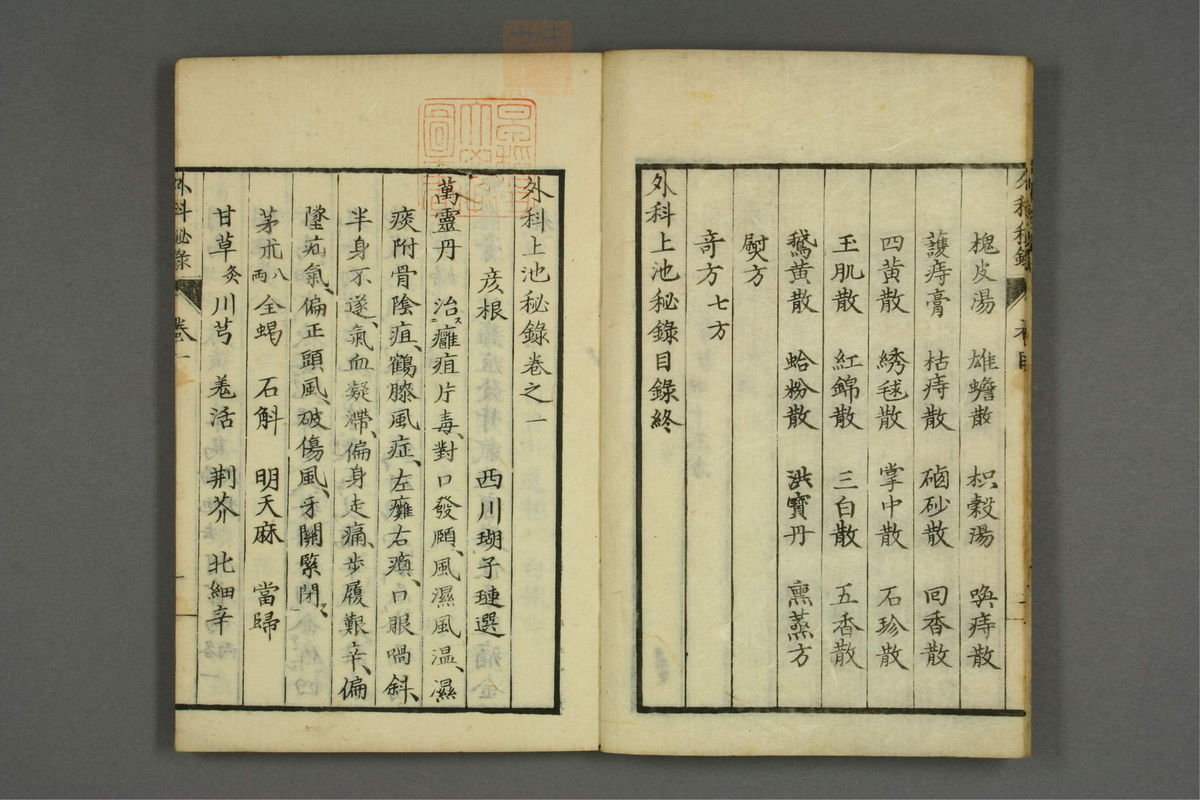 槐皮湯 雄蟾散 枳殼湯 喚痔散
護痔膏 枯痔散 硇砂散 回香散
四黃散 綉毬散 掌中散 石珍散
玉肌散 紅錦散 三白散 五香散
鵞黃散 蛤粉散 洪寶丹 熏蒸方
熨方
竒方 七方
外科上池秘錄目錄終
外科上池秘錄卷之一
彦根 西川瑚子璉選
萬靈丹 治癰疽片毒、對口發頤、風濕風温、濕
痰附骨陰疽、鶴膝風症、左癱右瘓、口眼喎斜、
半身不遂、氣血凝滯、偏身走痛、步履艱辛、偏
墜疝氣、偏正頭風、破傷風、牙關緊閉、
茅朮八兩 全蝎 石斛 明天麻 當歸
甘草灸 川芎 羗活 荆芥 北細辛
外科秘錄 卷一